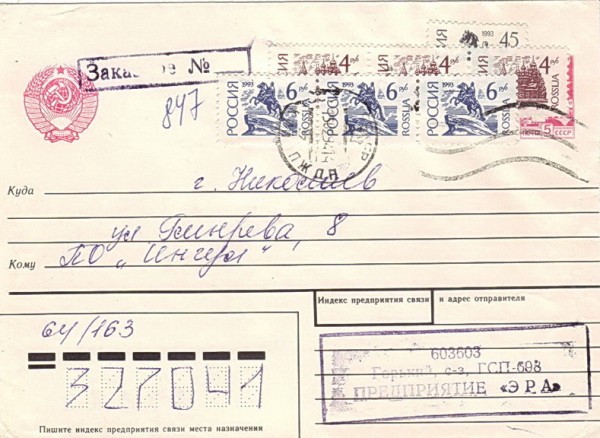 1993 45
4 РУБ 4 РУБ 4 РУБ
Заказное №
847
РОССИЯ 1993 6 РУБ ROSSIJA РОССИЯ 1993 6 РУБ ROSSIJA РОССИЯ 1993 6 РУБ ROSSIJA
ROSSIJA
5 почта СССР
ПЖДП
Куда г. Николаев
ул. 8
Кому ПО „Ингул"
Индекс предприятия связи и адрес отправителя
64/163
327041
603603
Горький, с-з, ГСП-698
ПРЕДПРИЯТИЕ «ЭРА»
Пишите индекс предприятия связи места назначения